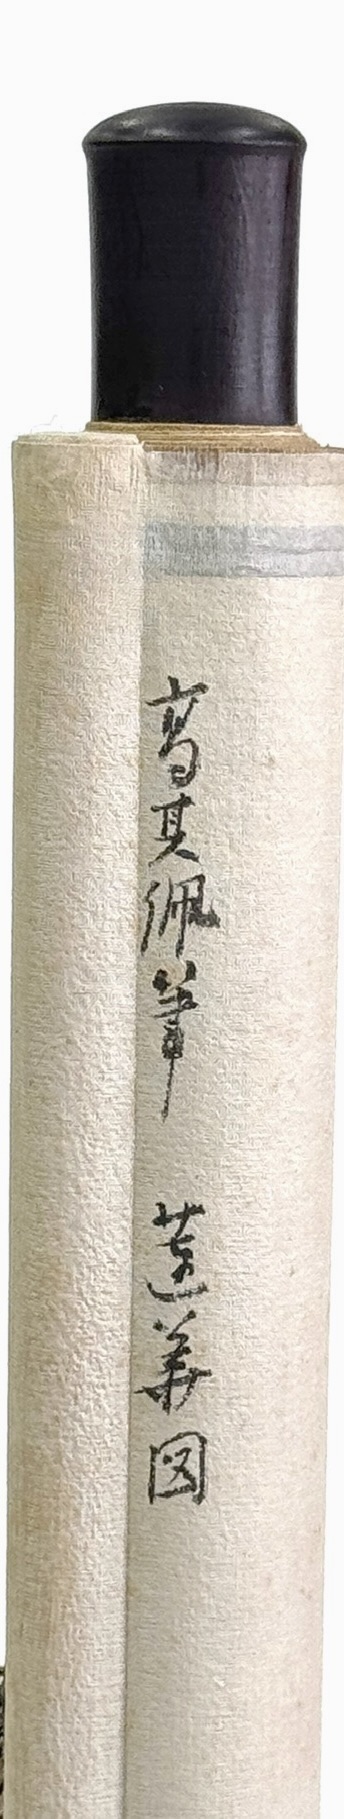 高其佩筆 蓮華図